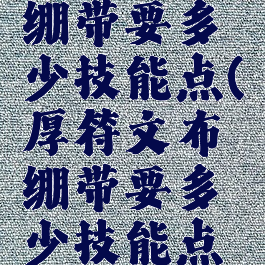 绷带要多
少技能点(
厚符文布
绷带要多
少技能点